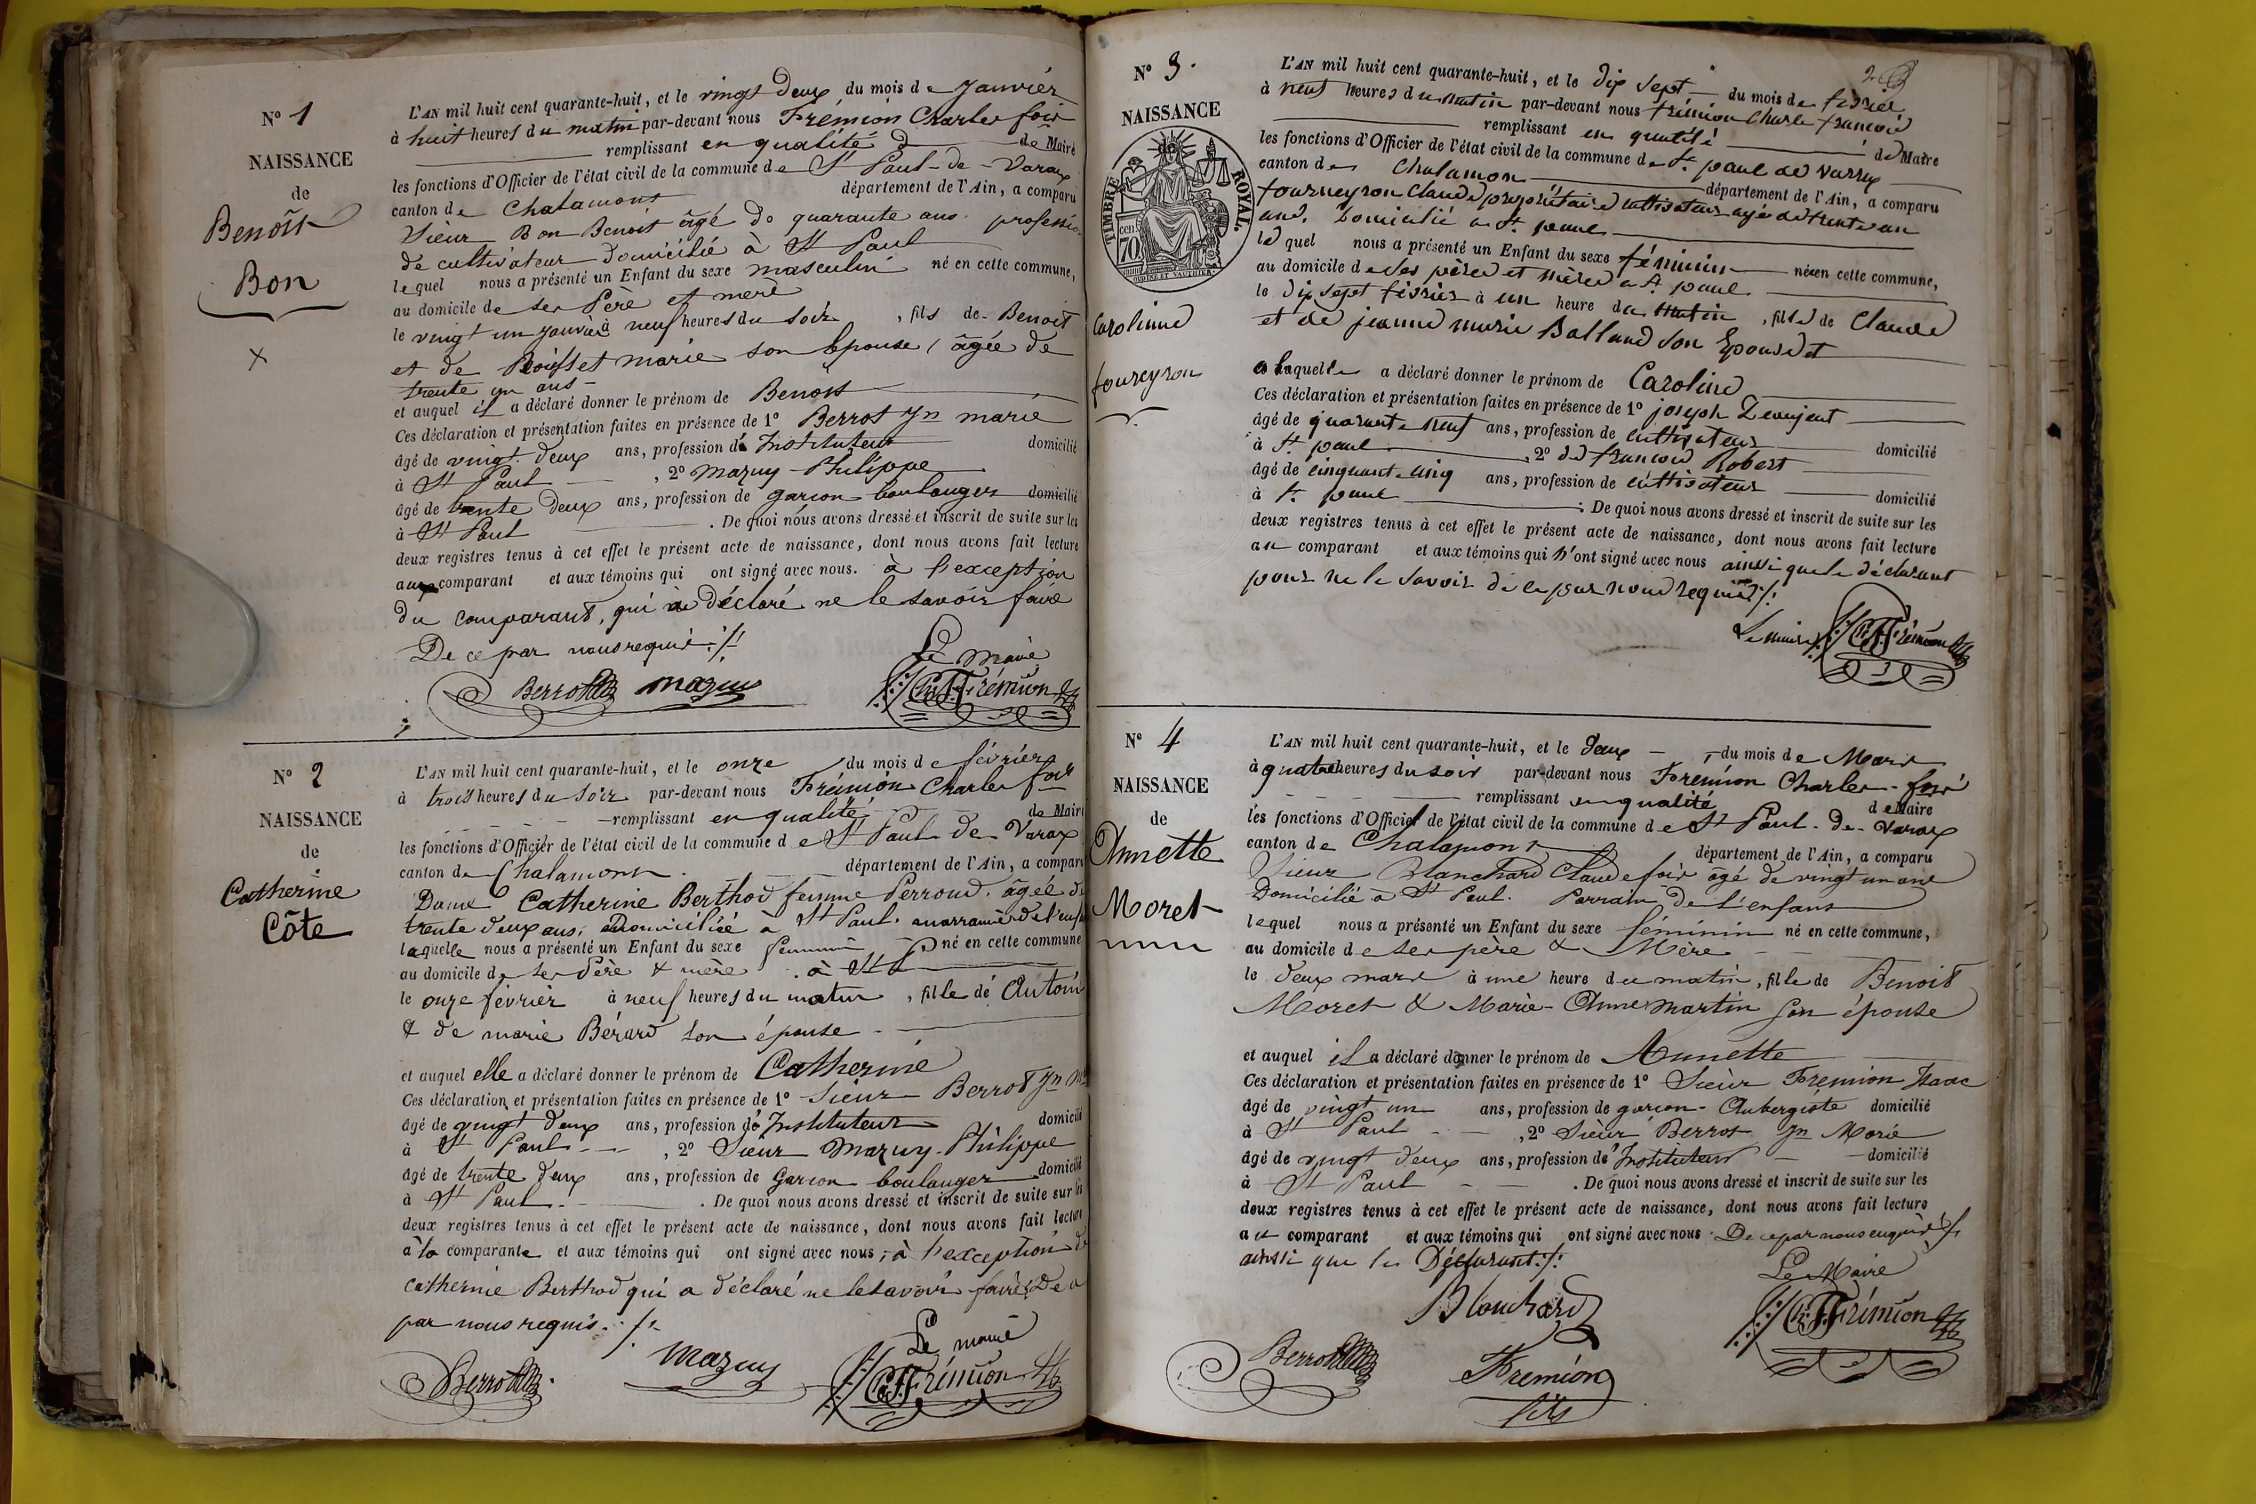 N° 1
NAISSANCE
de
Benoît
Bon
L'AN mil huit cent quarante-huit, et le vingt deux du mois de Janvier
à huit heures du matin par-devant nous Frémion Charles fois
remplissant en qualité de Maire
les fonctions d'Officier de l'état civil de la commune de St Paul-de-Varax
canton de Chalamont département de l'Ain, a comparu
Sieur Bon Benoit âgé de quarante ans profession
de cultivateur domicilié à St Paul
lequel nous a présenté un Enfant du sexe masculin né en cette commune,
au domicile de ses Père et mère
le vingt un janvier à neuf heures du soir, fils de Benoit
et de marie son épouse, âgée de
trente un ans
et auquel il a déclaré donner le prénom de Benoit
Ces déclaration et présentation faites en présence de 1° Berrot Jn marie
âgé de vingt deux ans, profession d'Instituteur domicilié
à St Paul, 2° Mazuy Philippe
âgé de trente deux ans, profession de garcon boulanger domicilié
à St Paul. De quoi nous avons dressé et inscrit de suite sur les
deux registres tenus à cet effet le présent acte de naissance, dont nous avons fait lecture
au comparant et aux témoins qui ont signé avec nous. à l'exception
du comparant, qui a déclaré ne le savoir faire
De ce par nous requis
Le Maire
Berrot Mazuy Frémion
N° 2
NAISSANCE
de
Catherine
Côte
L'AN mil huit cent quarante-huit, et le onze du mois de février
à trois heures du soir par-devant nous Frémion Charles fois
remplissant en qualité de Maire
les fonctions d'Officier de l'état civil de la commune de St Paul-de-Varax
canton de Chalamont département de l'Ain, a comparu
Dame Catherine Berthod femme Perroud, âgée de
trente deux ans, domiciliée à St Paul. marraine de l'enfant
laquelle nous a présenté un Enfant du sexe feminin né en cette commune
au domicile de ses Père & mère à St P
le onze février à neuf heures du matin, fille de Antoin
& de marie Bérard son épouse
et auquel elle a déclaré donner le prénom de Catherine
Ces déclaration et présentation faites en présence de 1° Sieur Berrot Jn
âgé de vingt deux ans, profession d'Instituteur domicilié
à St Paul, 2° Sieur Mazuy Philippe
âgé de trente deux ans, profession de Garcon boulanger domicilié
à St Paul. De quoi nous avons dressé et inscrit de suite sur les
deux registres tenus à cet effet le présent acte de naissance, dont nous avons fait lecture
à la comparante et aux témoins qui ont signé avec nous, à l'exception de
catherine Berthod qui a déclaré ne le savoir faire De ce
par nous requis.
Le maire
Berrot Mazuy Frémion
N° 3.
NAISSANCE
TIMBRE ROYAL.
70 cen
Caroline
foureyron
L'AN mil huit cent quarante-huit, et le dix sept du mois de février
à neuf heures du matin par-devant nous frémion Charle francois
remplissant en qualité de Maire
les fonctions d'Officier de l'état civil de la commune de St paul de varax
canton de Chalamon département de l'Ain, a comparu
fourneyron Claude propriétaire cultivateur agé de trente un
ans, domicilié a St paul
le quel nous a présenté un Enfant du sexe féminin née en cette commune,
au domicile de ses père et mère a St paul
le dix sept février à un heure du matin, fille de Claude
et de jeanne marie Balland son Epouse et
a laquelle a déclaré donner le prénom de Caroline
Ces déclaration et présentation faites en présence de 1° joseph
âgé de quarante neuf ans, profession de cultivateur domicilié
à St paul, 2° de francois Robert
âgé de cinquante cinq ans, profession de cultivateur domicilié
à St paul. De quoi nous avons dressé et inscrit de suite sur les
deux registres tenus à cet effet le présent acte de naissance, dont nous avons fait lecture
au comparant et aux témoins qui n'ont signé avec nous ainsi que le déclarant
pour ne le savoir de ce par nous requis
Le maire Frémion
N° 4
NAISSANCE
de
Annette
Moret
L'AN mil huit cent quarante-huit, et le deux du mois de Mars
à quatre heures du soir par-devant nous Frémion Charles fois
remplissant en qualité de Maire
les fonctions d'Officier de l'état civil de la commune de St Paul-de-Varax
canton de Chalamont département de l'Ain, a comparu
Sieur Blanchard Claude fois âgé de vingt un ans
Domicilié à St Paul. Parrain de l'enfant
lequel nous a présenté un Enfant du sexe féminin né en cette commune,
au domicile de ses père & Mère
le deux mars à une heure du matin, fille de Benoit
Moret & Marie-Anne Martin son épouse
et auquel il a déclaré donner le prénom de Annette
Ces déclaration et présentation faites en présence de 1° Sieur Fremion Isaac
âgé de vingt un ans, profession de garcon-Aubergiste domicilié
à St Paul, 2° Sieur Berrot Jn Marie
âgé de vingt deux ans, profession d'Instituteur domicilié
à St Paul. De quoi nous avons dressé et inscrit de suite sur les
deux registres tenus à cet effet le présent acte de naissance, dont nous avons fait lecture
au comparant et aux témoins qui ont signé avec nous De ce par nous enquis
ainsi que le Déclarant
Le Maire
Blanchard
Berrot Fremion Frémion
fils